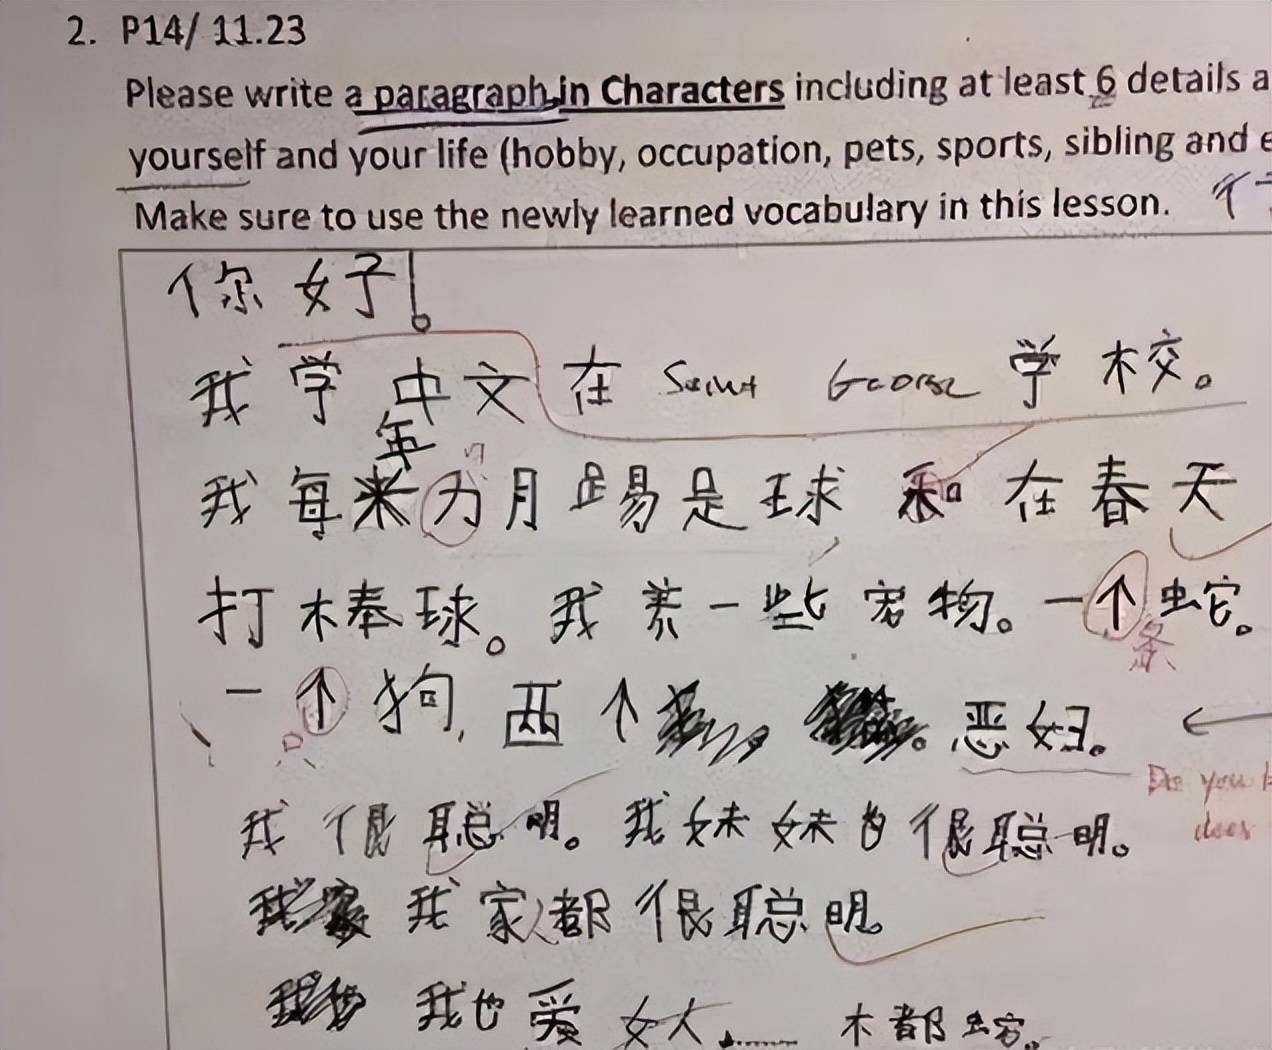 2. P14/ 11.23
Please write a paragraph in Characters including at least 6 details a
yourself and your life (hobby, occupation, pets, sports, sibling and e
Make sure to use the newly learned vocabulary in this lesson.
你好!
我学中文在 Saint George 学校。
年
我每 月踢是球和在春天
打棒球。我养一些宠物。一个蛇。
条
一个狗,两个 恶妇。
只
Do you
does
我很聪明。我妹妹也很聪明。
我家人都很聪明。
我也爱